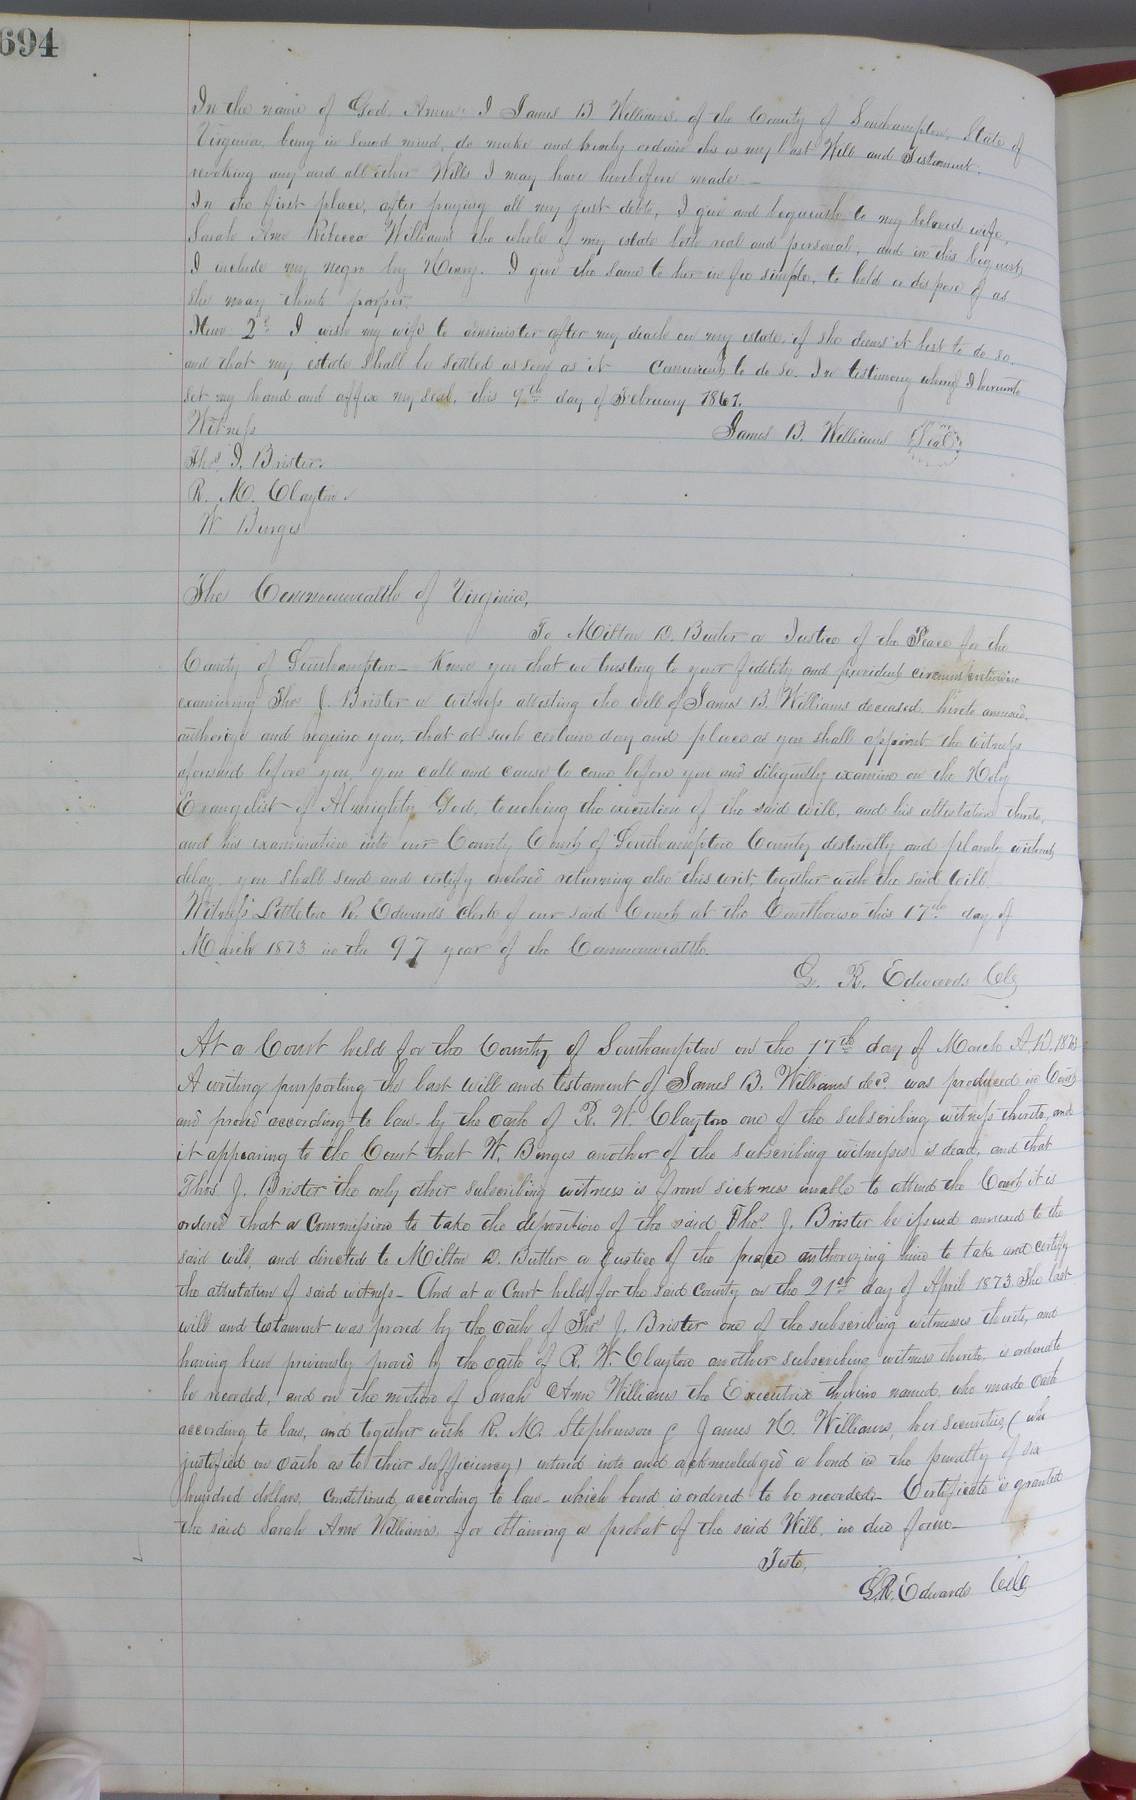 694
In the name of God, Amen. I James B. Williams of the County of Southampton, State of
Virginia, being in sound mind, do make and hereby ordain this as my last Will and Testament,
revoking any and all other Wills I may have heretofore made.—
In the first place, after paying all my just debts, I give and bequeath to my beloved wife,
Sarah Ann Rebecca Williams the whole of my estate both real and personal, and in this bequest,
I include my negro boy Henry. I give the same to her in fee simple, to hold or dispose of as
she may think proper.
Item 2d I wish my wife to administer after my death on my estate, if she deems it best to do so,
and that my estate shall be settled as soon as it convenient to do so. In testimony whereof I hereunto
set my hand and affix my seal, this 9th day of February 1861.
Witness James B. Williams {Seal}
Thos J. Brister.
R. M. Clayton
W Burges
The Commonwealth of Virginia,
To Milton D. Butler a Justice of the Peace for the
County of Southampton— Know you that we trusting to your fidelity and provident circumspection in
examining Thos J. Brister a witness attesting the will of James B. Williams deceased, hereto annexed,
authorize and require you, that at such certain day and place as you shall appoint the witness
aforesaid before you, you call and cause to come before you and diligently examine on the Holy
Evangelist of Almighty God, touching the execution of the said will, and his attestation thereto,
and his examination into our County Court of Southampton County distinctly and plainly without
delay, you shall send and certify enclosed returning also this writ, together with the said Will.
Witness Littleton R. Edwards clerk of our said Court at the Courthouse this 17th day of
March 1873 in the 97 year of the Commonwealth.
L. R. Edwards Clk
At a Court held for the County of Southampton on the 17th day of March A.D. 1873
A writing purporting the last will and testament of James B. Williams decd. was produced in Court
and proved according to law by the oath of R. W. Clayton one of the subscribing witness thereto, and
it appearing to the Court that W. Burges another of the subscribing witnesses is dead, and that
Thos. J. Brister the only other subscribing witness is from sickness unable to attend the Court it is
ordered that a Commission to take the deposition of the said Thos. J. Brister be issued annexed to the
said will, and directed to Milton D. Butler a Justice of the peace authorizing him to take and certify
the attestation of said witness— And at a Court held for the said County on the 21st day of April 1873. The last
will and testament was proved by the oath of Thos J. Brister one of the subscribing witnesses thereto, and
having been previously proved by the oath of R. W. Clayton another subscribing witness thereto, is ordered to
be recorded, and on the motion of Sarah Ann Williams the Executrix therein named, who made oath
according to law, and together with R. M. Stephenson & James N. Williams, her securities, (who
justified on oath as to their sufficiency) entered into and acknowledged a bond in the penalty of six
hundred dollars, conditioned according to law— which bond is ordered to be recorded— Certificate is granted
the said Sarah Ann Williams, for obtaining a probat of the said Will, in due form—
Teste,
L. R. Edwards Clk